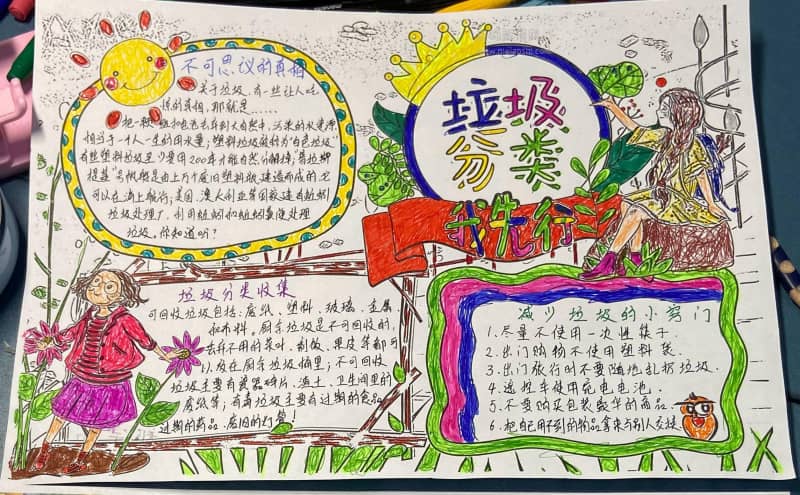 垃圾
分类
我先行
不可思议的真相
关于垃圾,有一些让人吃
惊的真相,那就是……
把一颗纽扣电池丢弃到大自然中,污染的水资源
相当于一个人一生的用水量;塑料垃圾被称为"白色垃圾"
有些塑料垃圾至少要用200年才能自然分解掉;普拉斯
提基"号帆船是由上万个废旧塑料瓶建造而成的它
可以在海上航行;美国、澳大利亚等国家建有蚯蚓
垃圾处理厂,利用蚯蚓和蚯蚓粪便处理
垃圾。你知道吗?
垃圾分类收集
可回收垃圾包括:废纸、塑料、玻璃、金属
和布料。厨余垃圾是不可回收的,
丢弃不用的菜叶、剩饭、果皮等都可
以放在厨余垃圾桶里;不可回收
垃圾主要有瓷器碎片、渣土、卫生间里的
废纸等;有毒垃圾主要有过期的食品
过期的药品、废旧的灯管!
减少垃圾的小窍门
1.尽量不使用一次性筷子.
2.出门购物不使用塑料袋.
3.出门旅行时不要随地乱扔垃圾.
4.遥控车使用充电电池.
5.不要购买包装奢华的商品.
6.把自己用不到的物品拿来与别人交换.